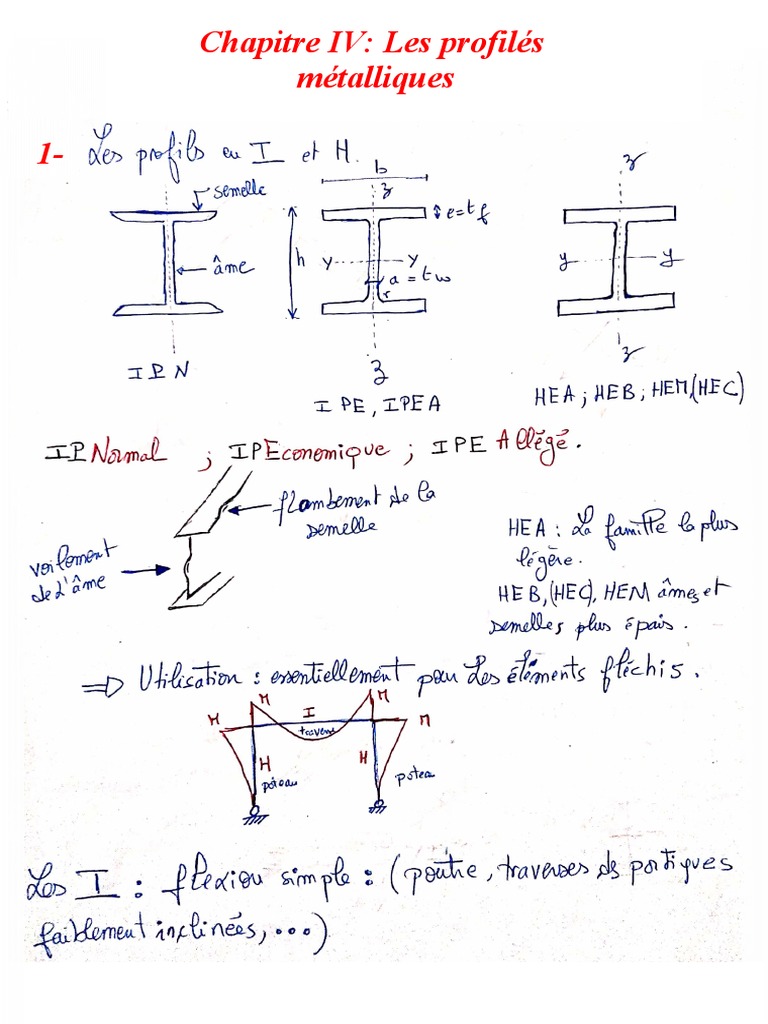 Chapitre IV: Les profilés
métalliques
1- Les profils en I et H.
semelle
âme
IPN
b
z
e=tf
h
y
y
a = tw
r
z
IPE, IPEA
z
y
y
z
HEA; HEB; HEM,(HEC)
IPNormal ; IPEconomique ; IPE Allégé.
flambement de la
semelle
voilement
de l'âme
HEA : La famille la plus
légère.
HEB,(HEC), HEM âmes et
semelles plus épais.
⇒ Utilisation : essentiellement pour les éléments fléchis.
M
M
I
M
M
traverse
H
H
poteau
potea
Les I : flexion simple : (poutre, traverses de portiques
faiblement inclinées, ...)